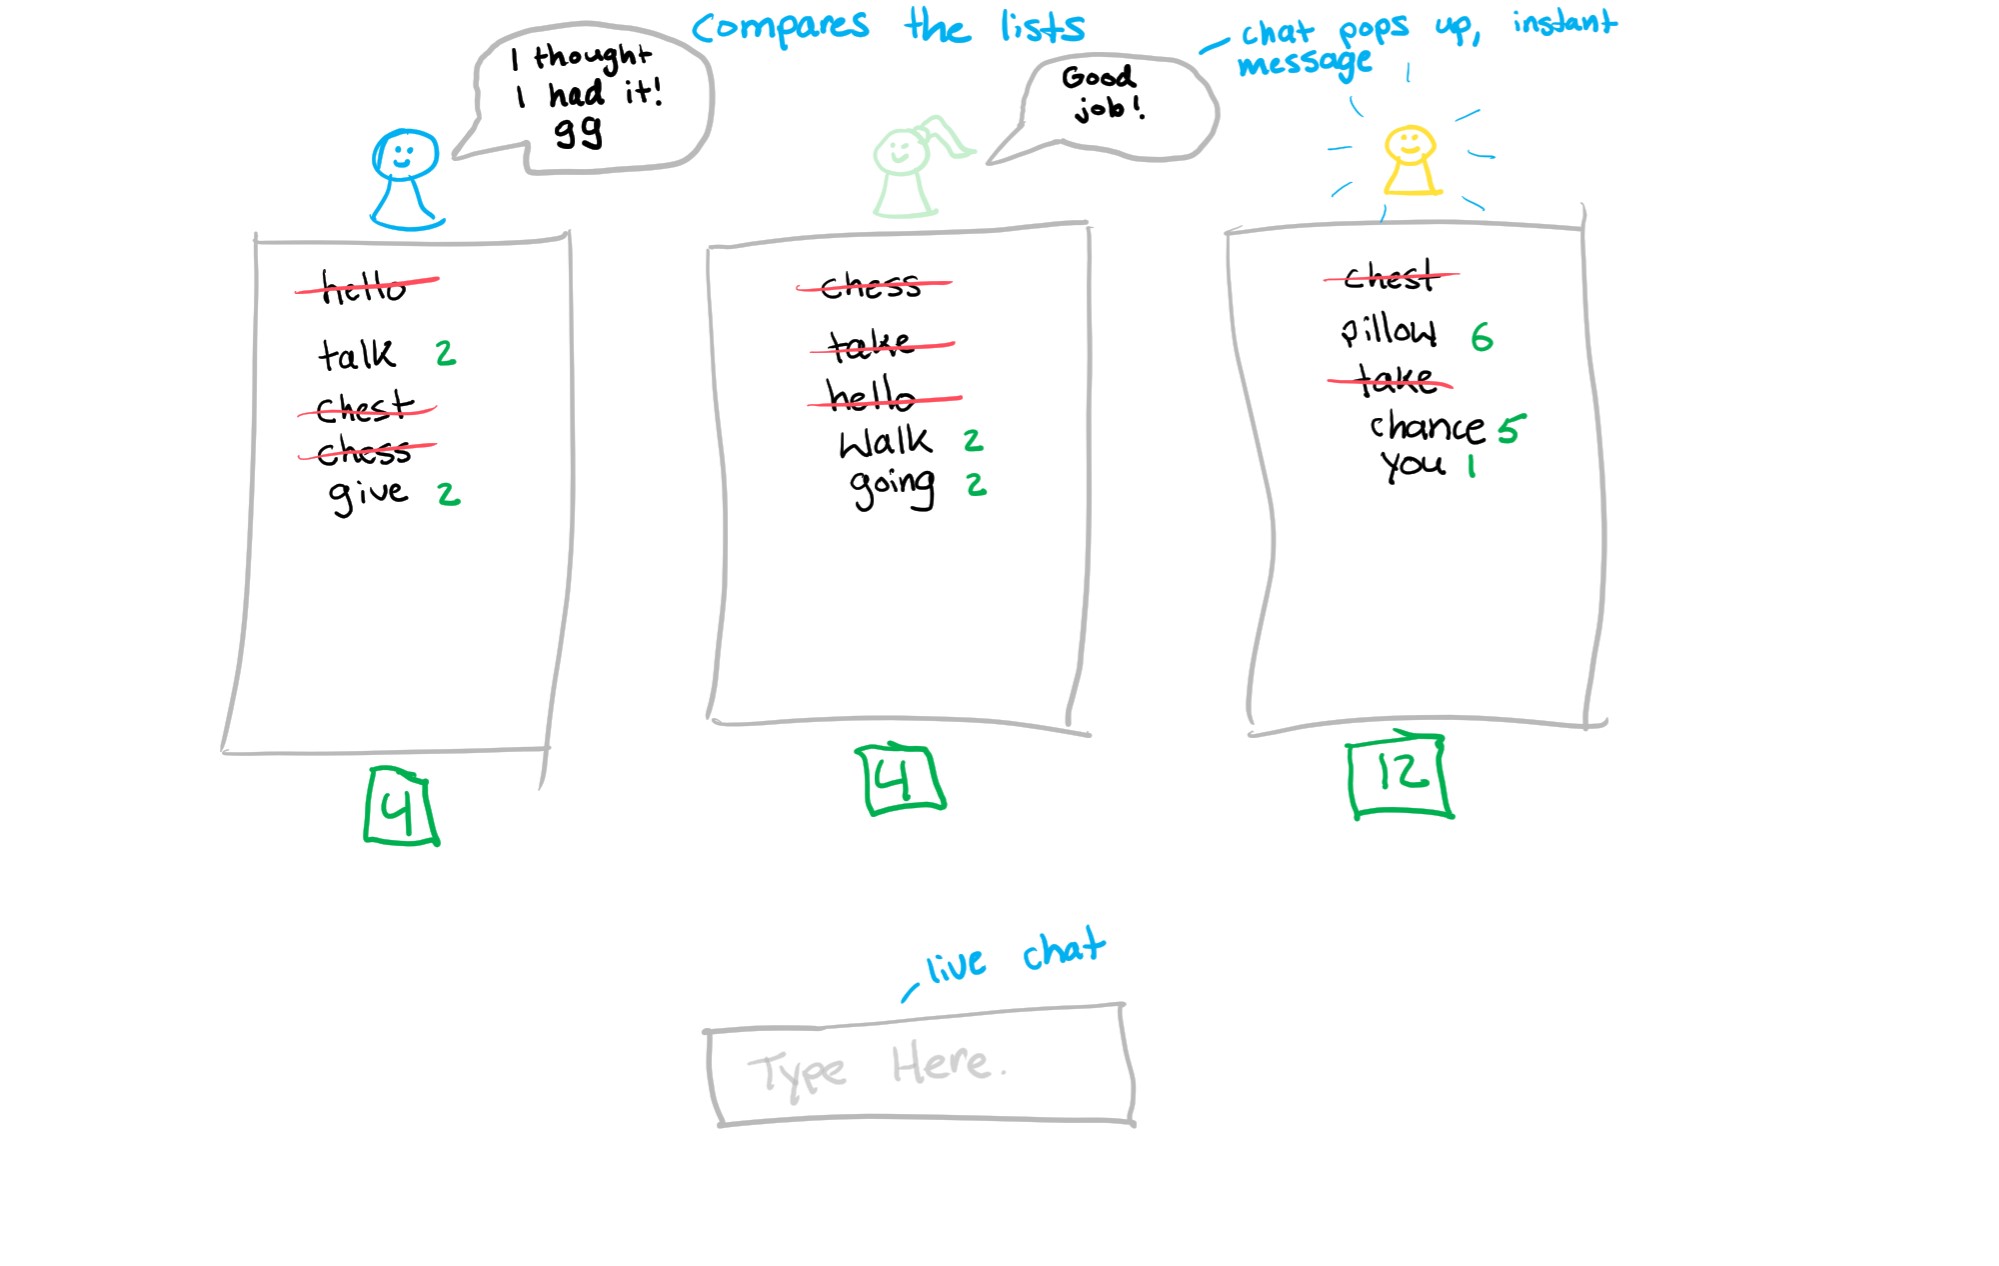 compares the lists
chat pops up, instant
message
I thought
I had it!
gg
Good
job!
hello
talk 2
chest
chess
give 2
4
chess
take
hello
Walk 2
going 2
4
chest
pillow 6
take
chance 5
you 1
12
live chat
Type Here.